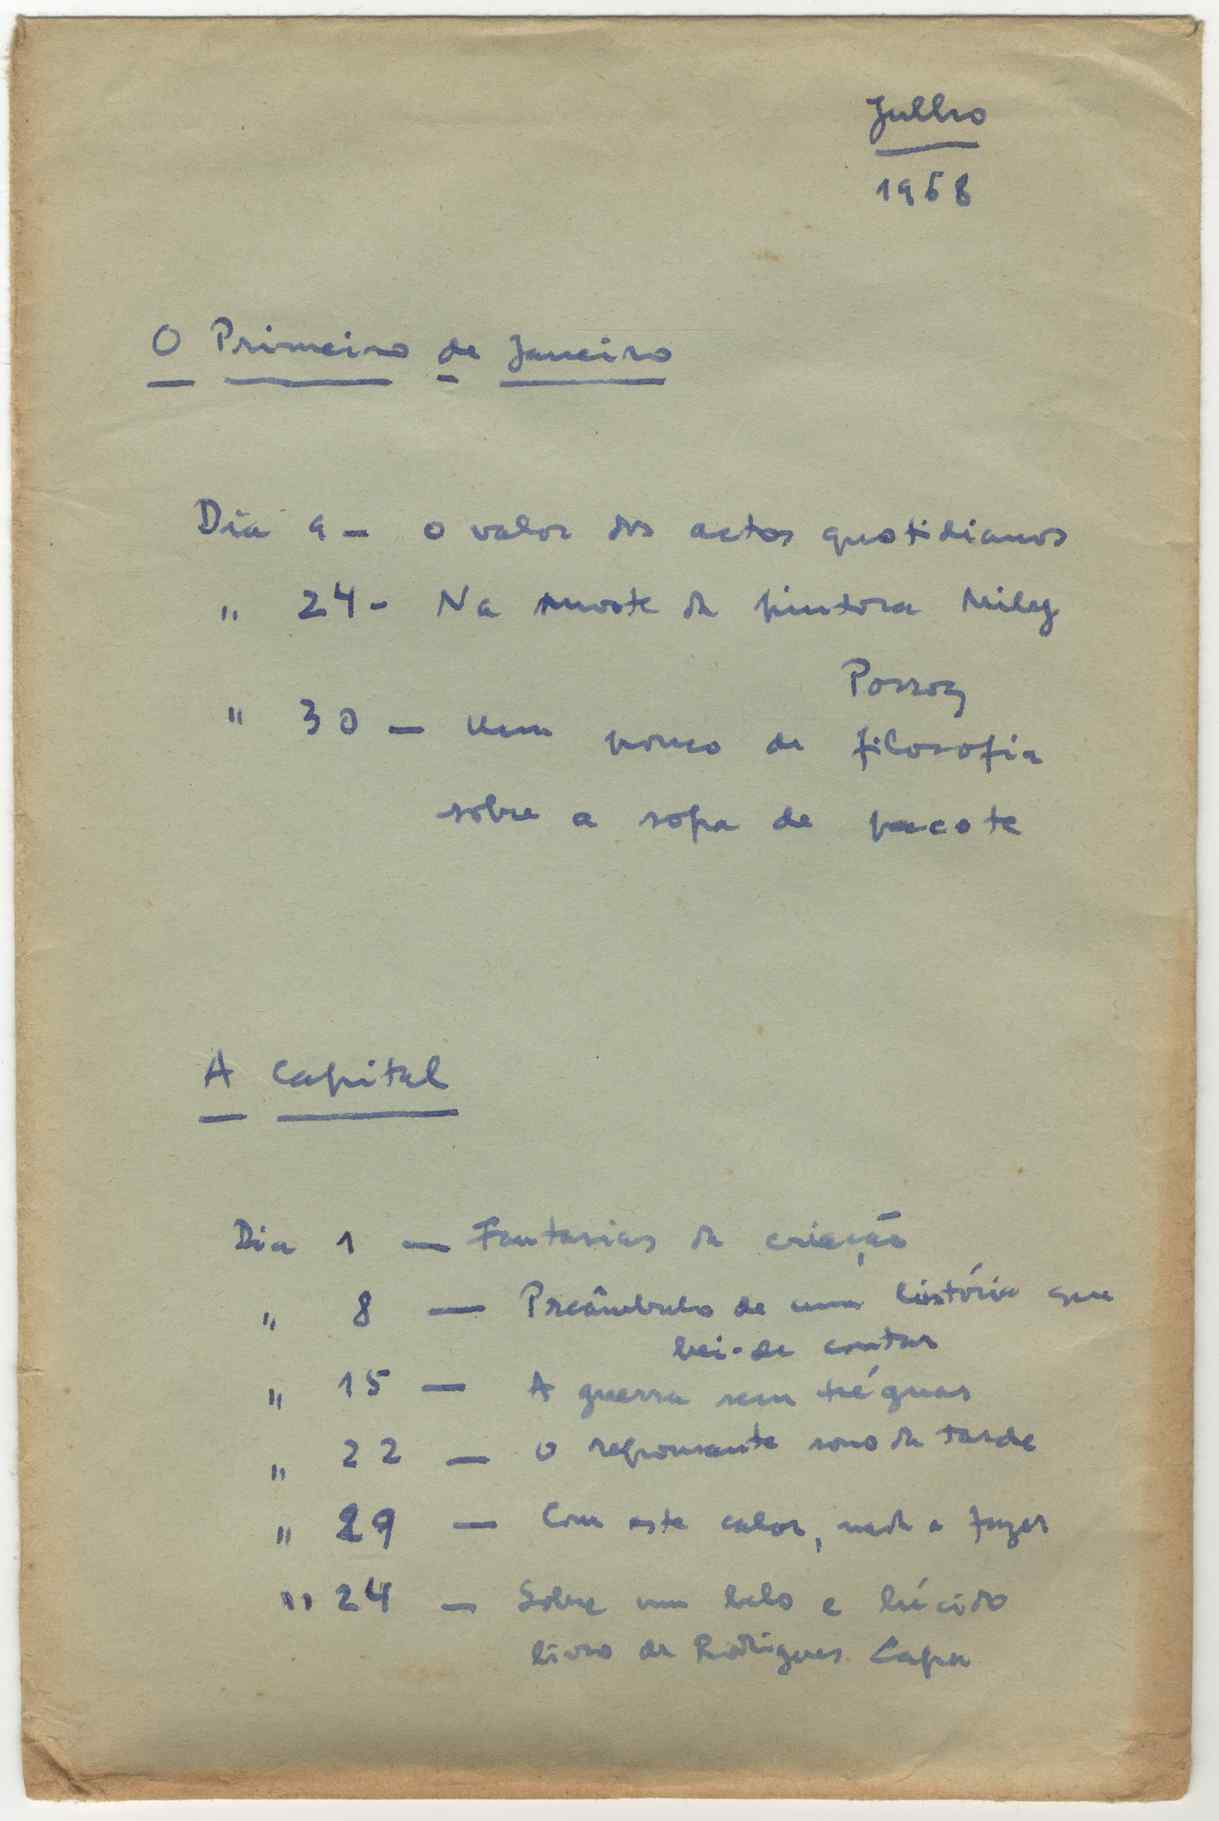 Julho
1968
O Primeiro de Janeiro
Dia 9 - O valor dos actos quotidianos
" 24 - Na morte da pintora Mily
Possoz
" 30 - Um pouco de filosofia
sobre a sopa de pacote
A Capital
Dia 1 - Fantasias da criação
" 8 - Preâmbulo de uma história que
hei-de contar
" 15 - A guerra sem tréguas
" 22 - O repousante sono da tarde
" 29 - Com este calor, nada a fazer
" 24 - Sobre um belo e lúcido
livro de Rodrigues Lapa